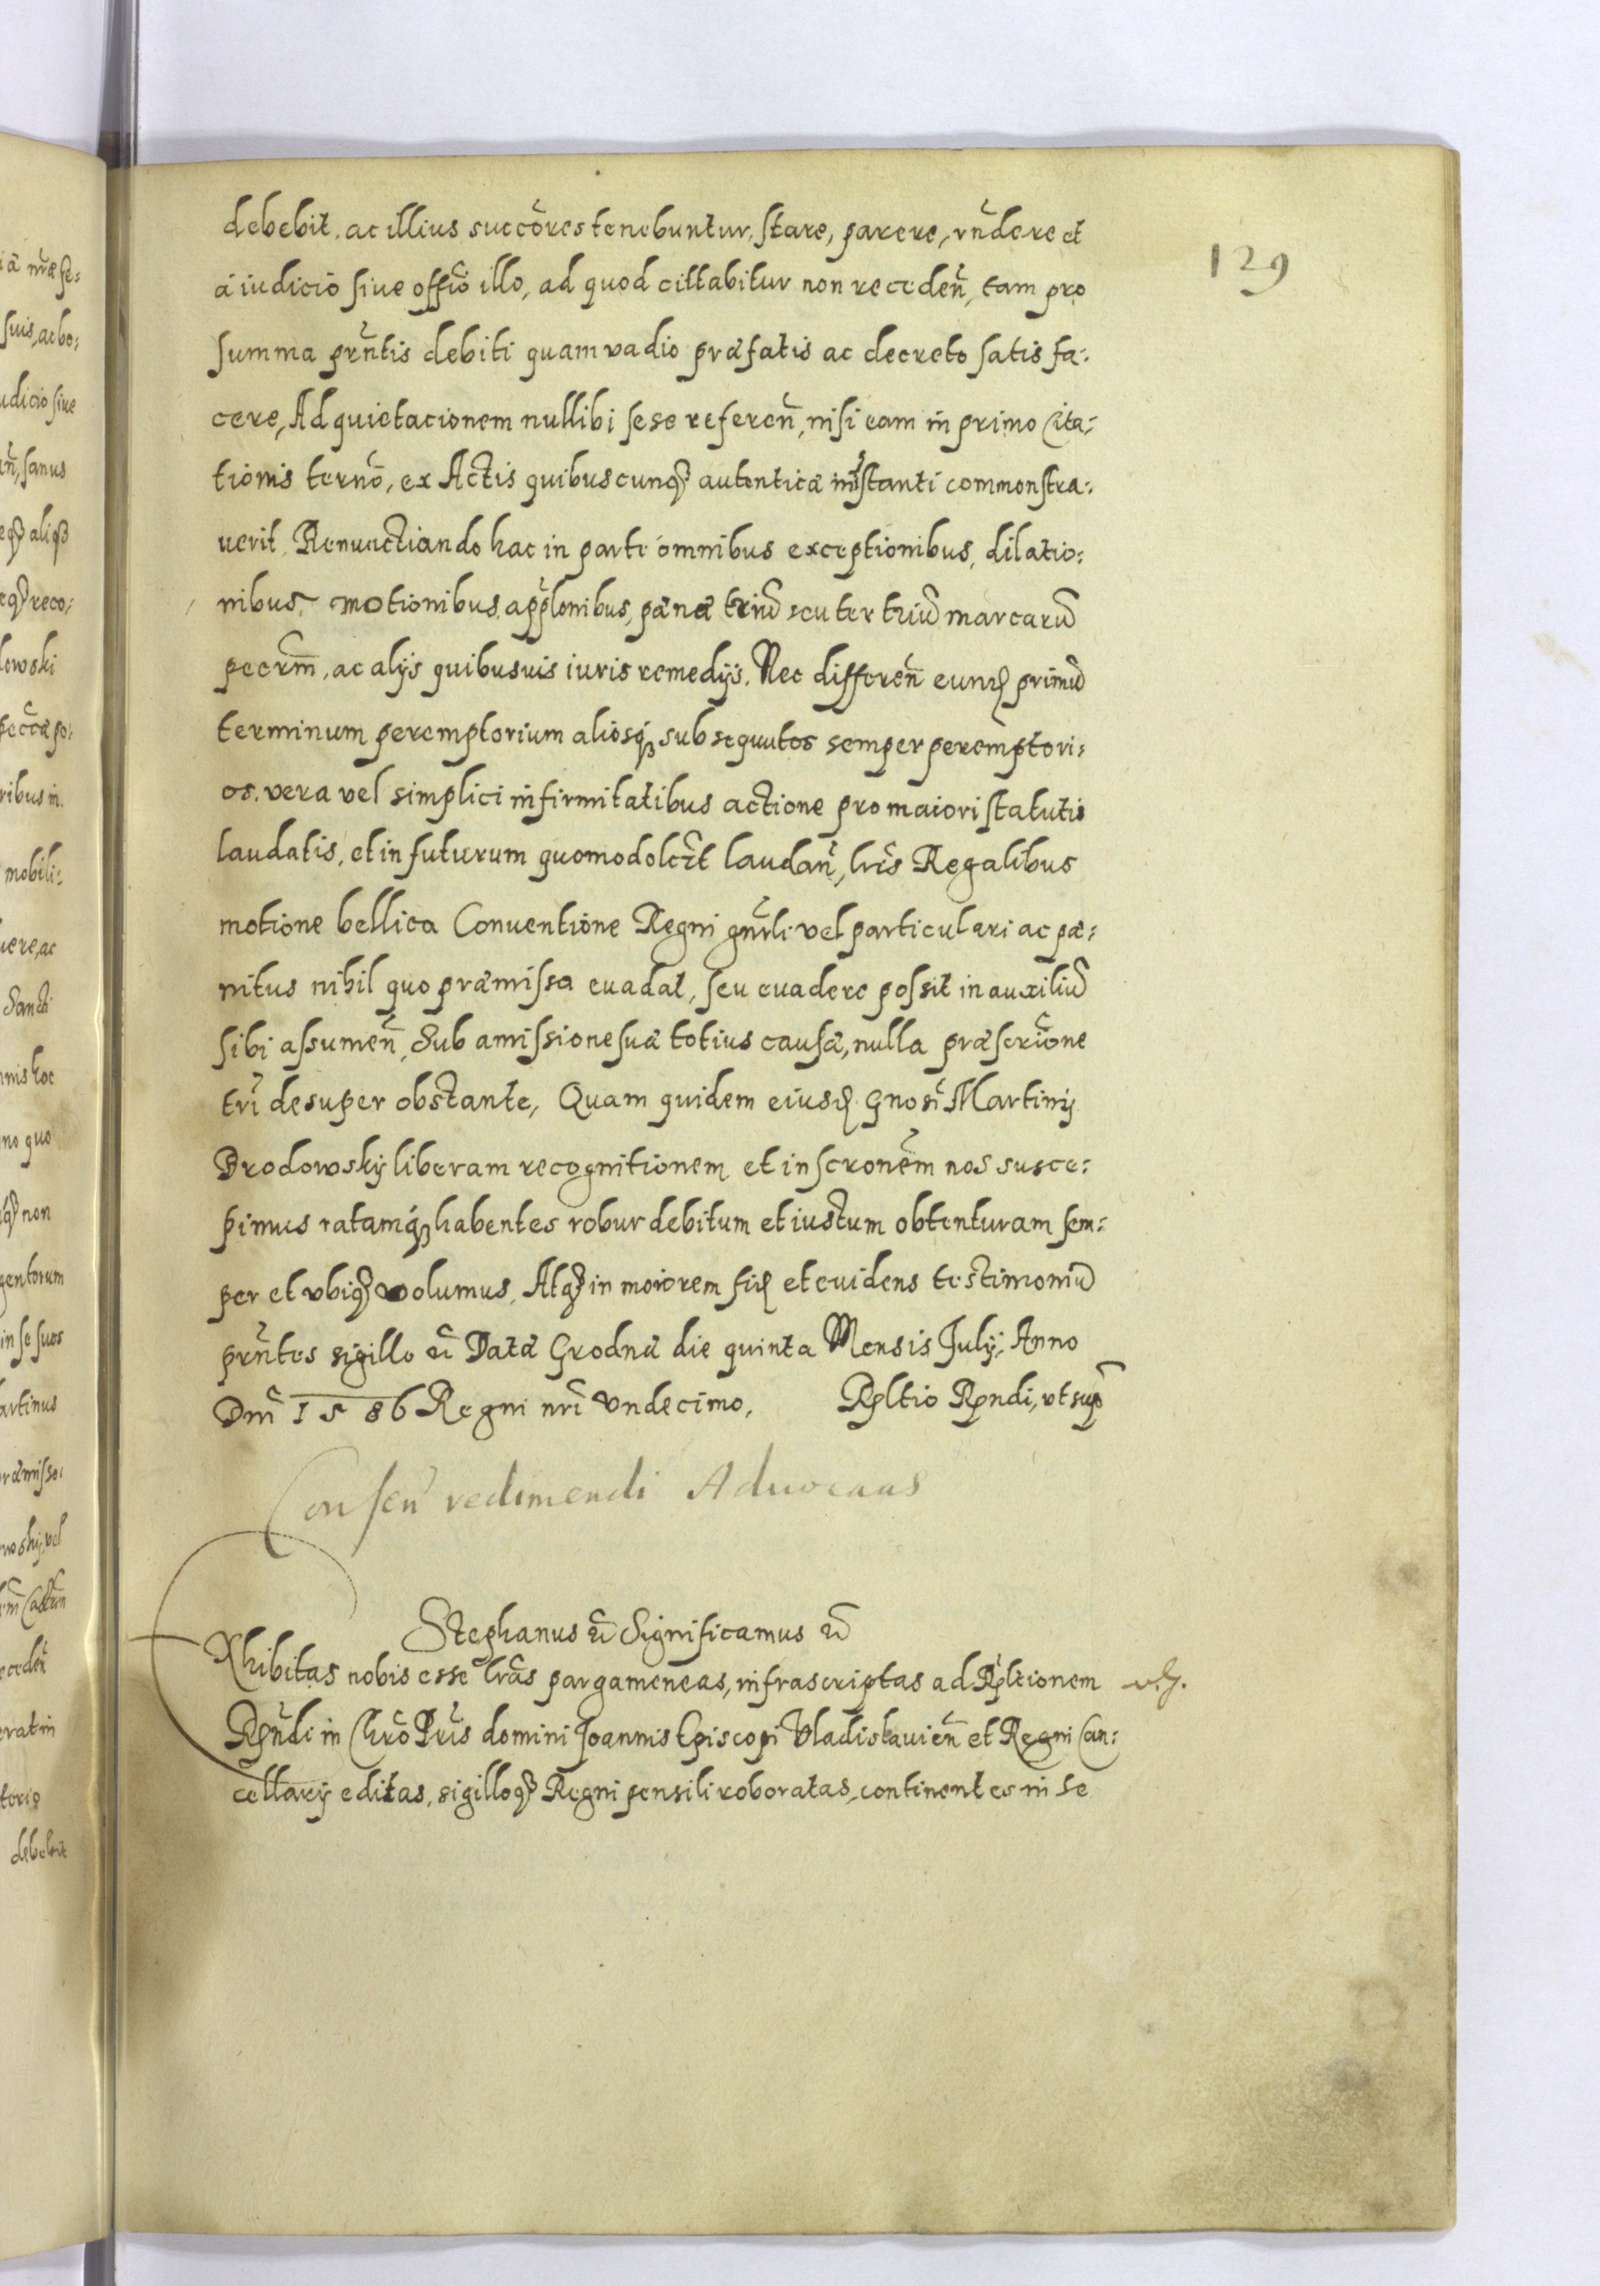 debebit, ac illius succōres tenebuntur, stare, parere, rn̄dere et
129
á iudicio siue offīo illo, ad quod cittabitur non receden̄, tam pro
summa prn̄tis debiti quam vadio præfatis ac decreto satis fa-
cere, Ad quietacionem nullibi sese referen̄, nisi eam in primo Cita-
tionis termō, ex Actis quibuscunqȝ autenticæ instanti commonstra-
uerit. Renunctiando hac in parte omnibus exceptionibus, dilatio-
nibus, motionibus, appl̄onibus, pænæ triū seu ter triū marcarū
pecrm̄, ac alÿs quibusuis iuris remedÿs. Nec differen̄ eund primū
terminum peremptorium aliosqȝ subsequutos semper peremptori-
os, vera vel simplici infirmitatibus actione pro maiori statutis
laudatis, et in futurum quomodolc̄t laudan̄, lrīs Regalibus
motione bellica Conuentione Regni gnr̄li vel particulari ac pæ-
nitus nihil quo præmissa euadat, seu euadere possit in auxiliū
sibi assumen̄, Sub amissione suæ totius causæ, nulla præscrīone
trī desuper obstante, Quam quidem eiusd Gnosī Martinÿ
Brodowskÿ liberam recognitionem et inscronēm nos susce-
pimus ratamqȝ habentes robur debitum et iustum obtenturam sem-
per et vbiqȝ volumus. Atqȝ in moiorem fid et euidens testimoniū
prn̄tes sigillo etc̄ Datæ Grodnæ die quinta Mensis Julÿ, Anno
Dm̄ 1586 Regni nrī Vndecimo, Rltio Rndi, vt sup̄
Consen̄ redimendi Aduocaus
Stephanus etc̄ Significamus etc̄
Xhibitas nobis esse lrās pargameneas, infrascriptas ad Rltionem
Rn̄di in Chrō Prīs domini Joannis Episcopi Vladislauien̄ et Regni Can-
cellarÿ editas, sigilloqȝ Regni pensili roboratas, continentes in se